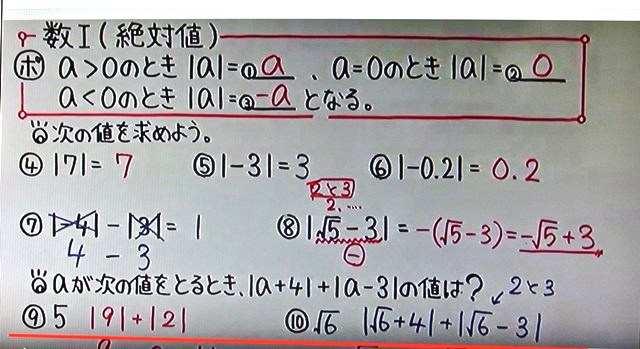 数I(絶対値)
ポ a>0のとき |a|=①a 、a=0のとき |a|=②0
a<0のとき |a|=③-a となる。
次の値を求めよう。
④ |7|= 7 ⑤ |-3|=3 ⑥ |-0.2|= 0.2
2と3
2.…
⑦ |-4|-|3|= 1 ⑧ |√5-3|= -(√5-3)=-√5+3
4 - 3 -
aが次の値をとるとき、|a+4|+|a-3|の値は? 2と3
⑨ 5 |9|+|2| ⑩ √6 |√6+4|+|√6-3|